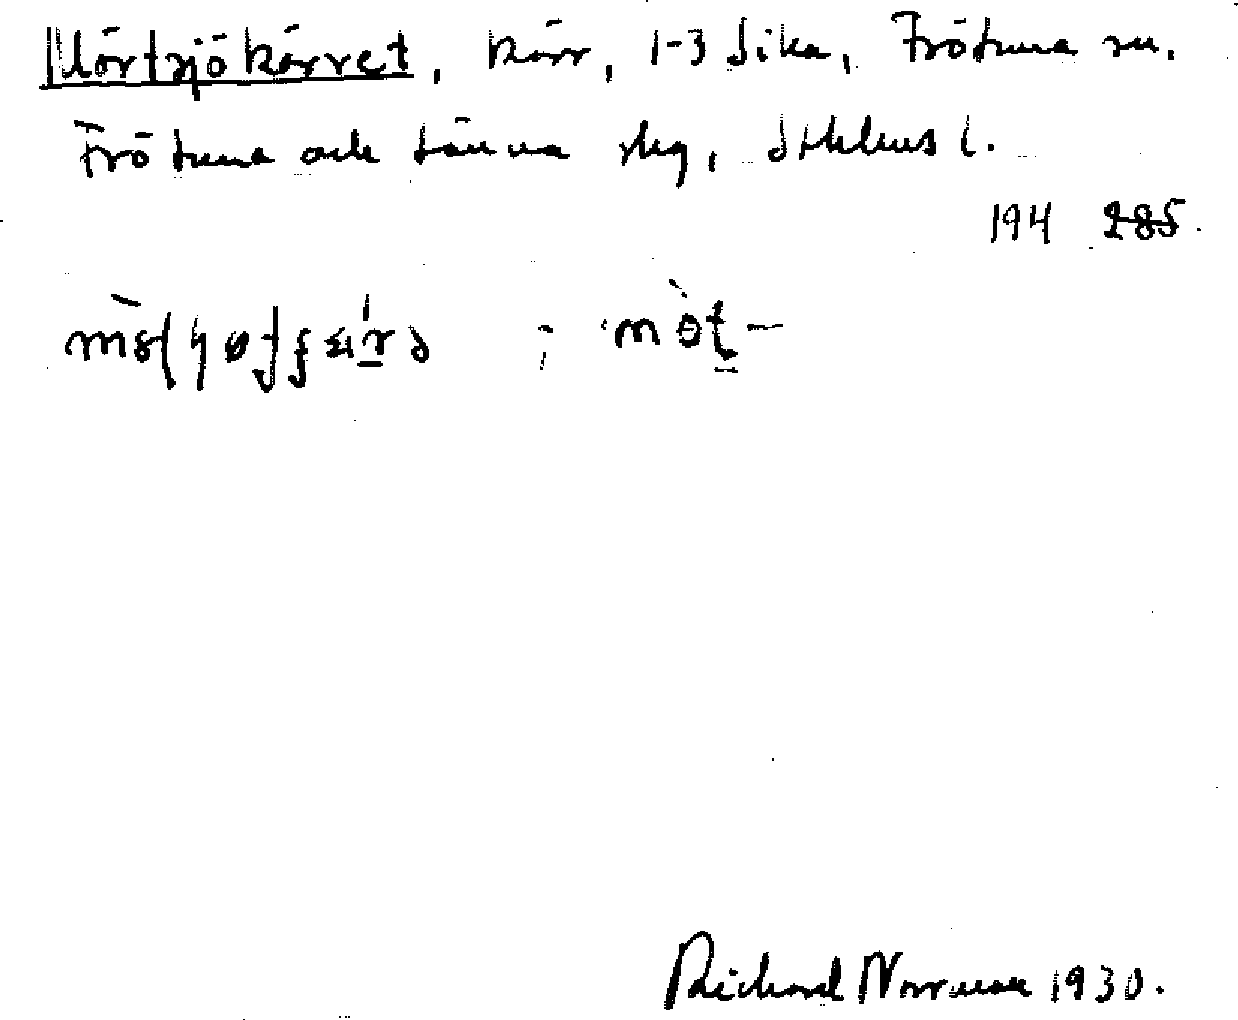 Mörtsjökärret, kärr, 1-3 Sika, Frötuna sn.
Frötuna och Länna skg, Sthlms l.
194 285.
; mòt-
Richard Norrman 1930.